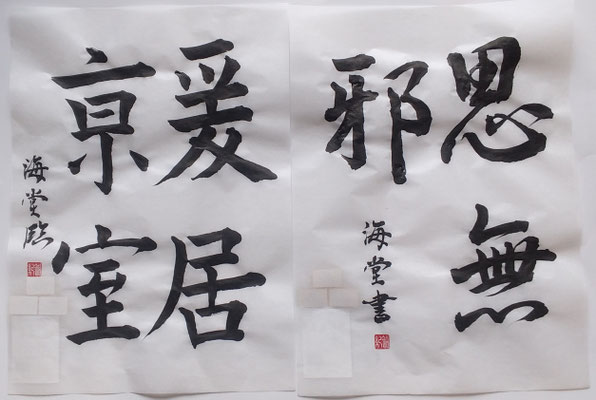 思無
邪
海堂書
爰居
亰室
海堂臨